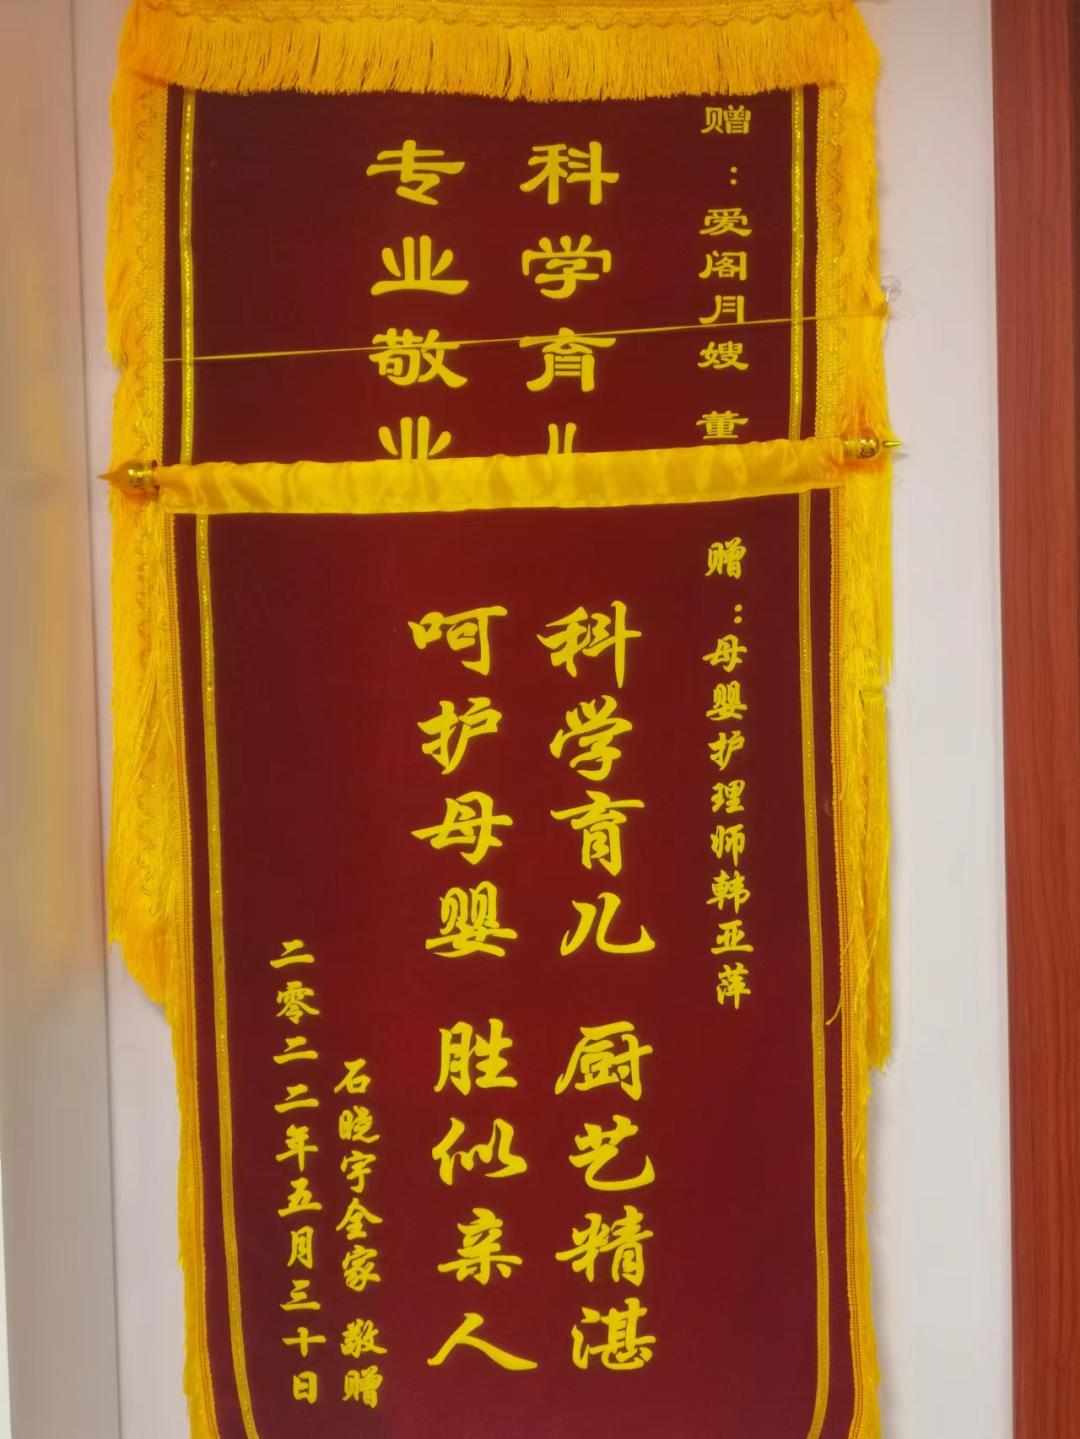 赠：爱阁月嫂 董
科学育儿
专业敬业
赠：母婴护理师韩亚萍
科学育儿 厨艺精湛
呵护母婴 胜似亲人
石晓宇全家 敬赠
二零二二年五月三十日